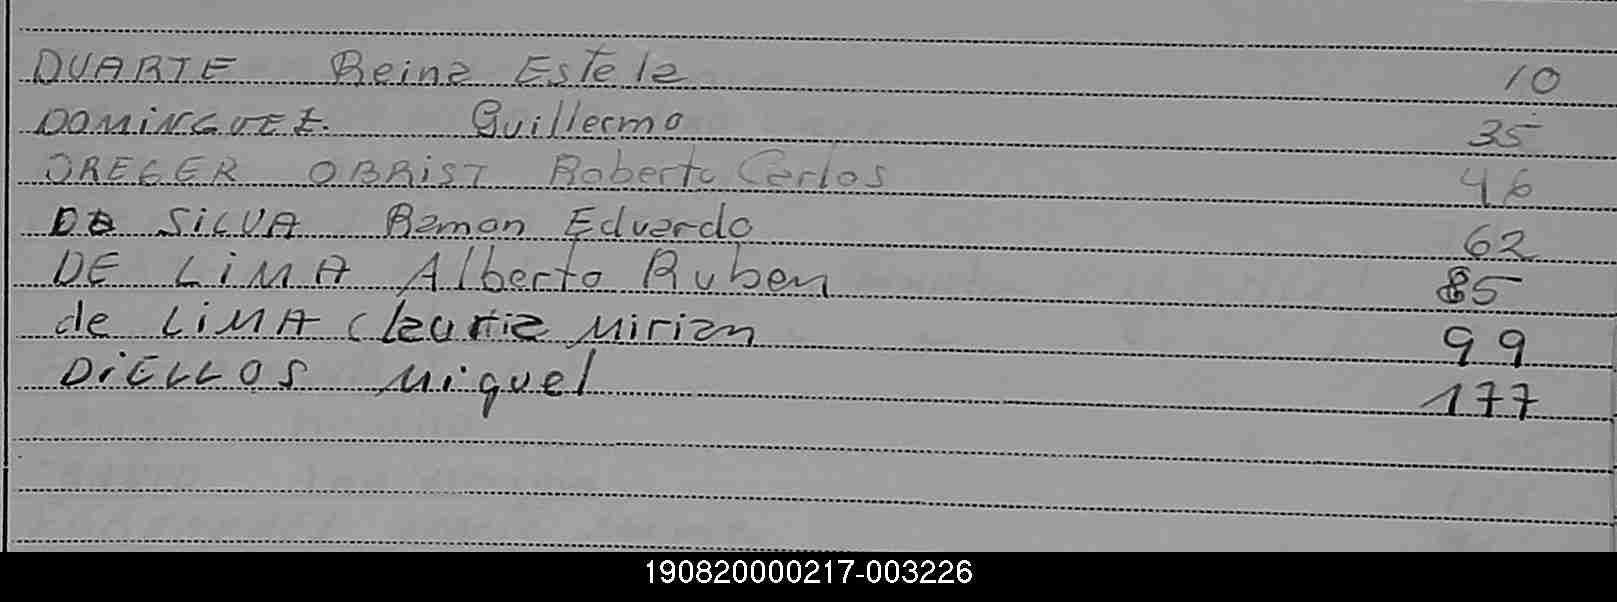 DUARTE Reina Estela 10
DOMiNGUEZ. Guillermo 35
DREGER OBRiST Roberto Carlos 46
DA SiLVA Ramon Eduardo 62
DE LiMA Alberto Ruben 85
de LiMA Claudia Mirian 99
DiELLOS Miguel 177
190820000217-003226